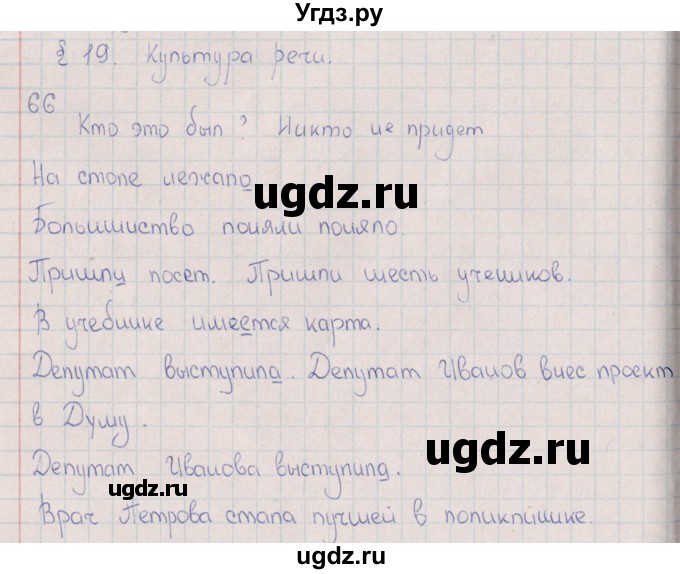 Угдз.ру
§ 19. Культура речи.
66
Кто это был? Никто не придет
На столе лежало
ugdz.ru
Большинство поняли поняло.
Пришли посет. Пришли шесть учеников.
В учебнике имеется карта.
Депутат выступила. Депутат Иванов внес проект
в Думу.
ugdz.ru
Депутат Иванова выступила.
ugdz.ru
Врач Петрова стала лучшей в поликлинике.
ugdz.ru